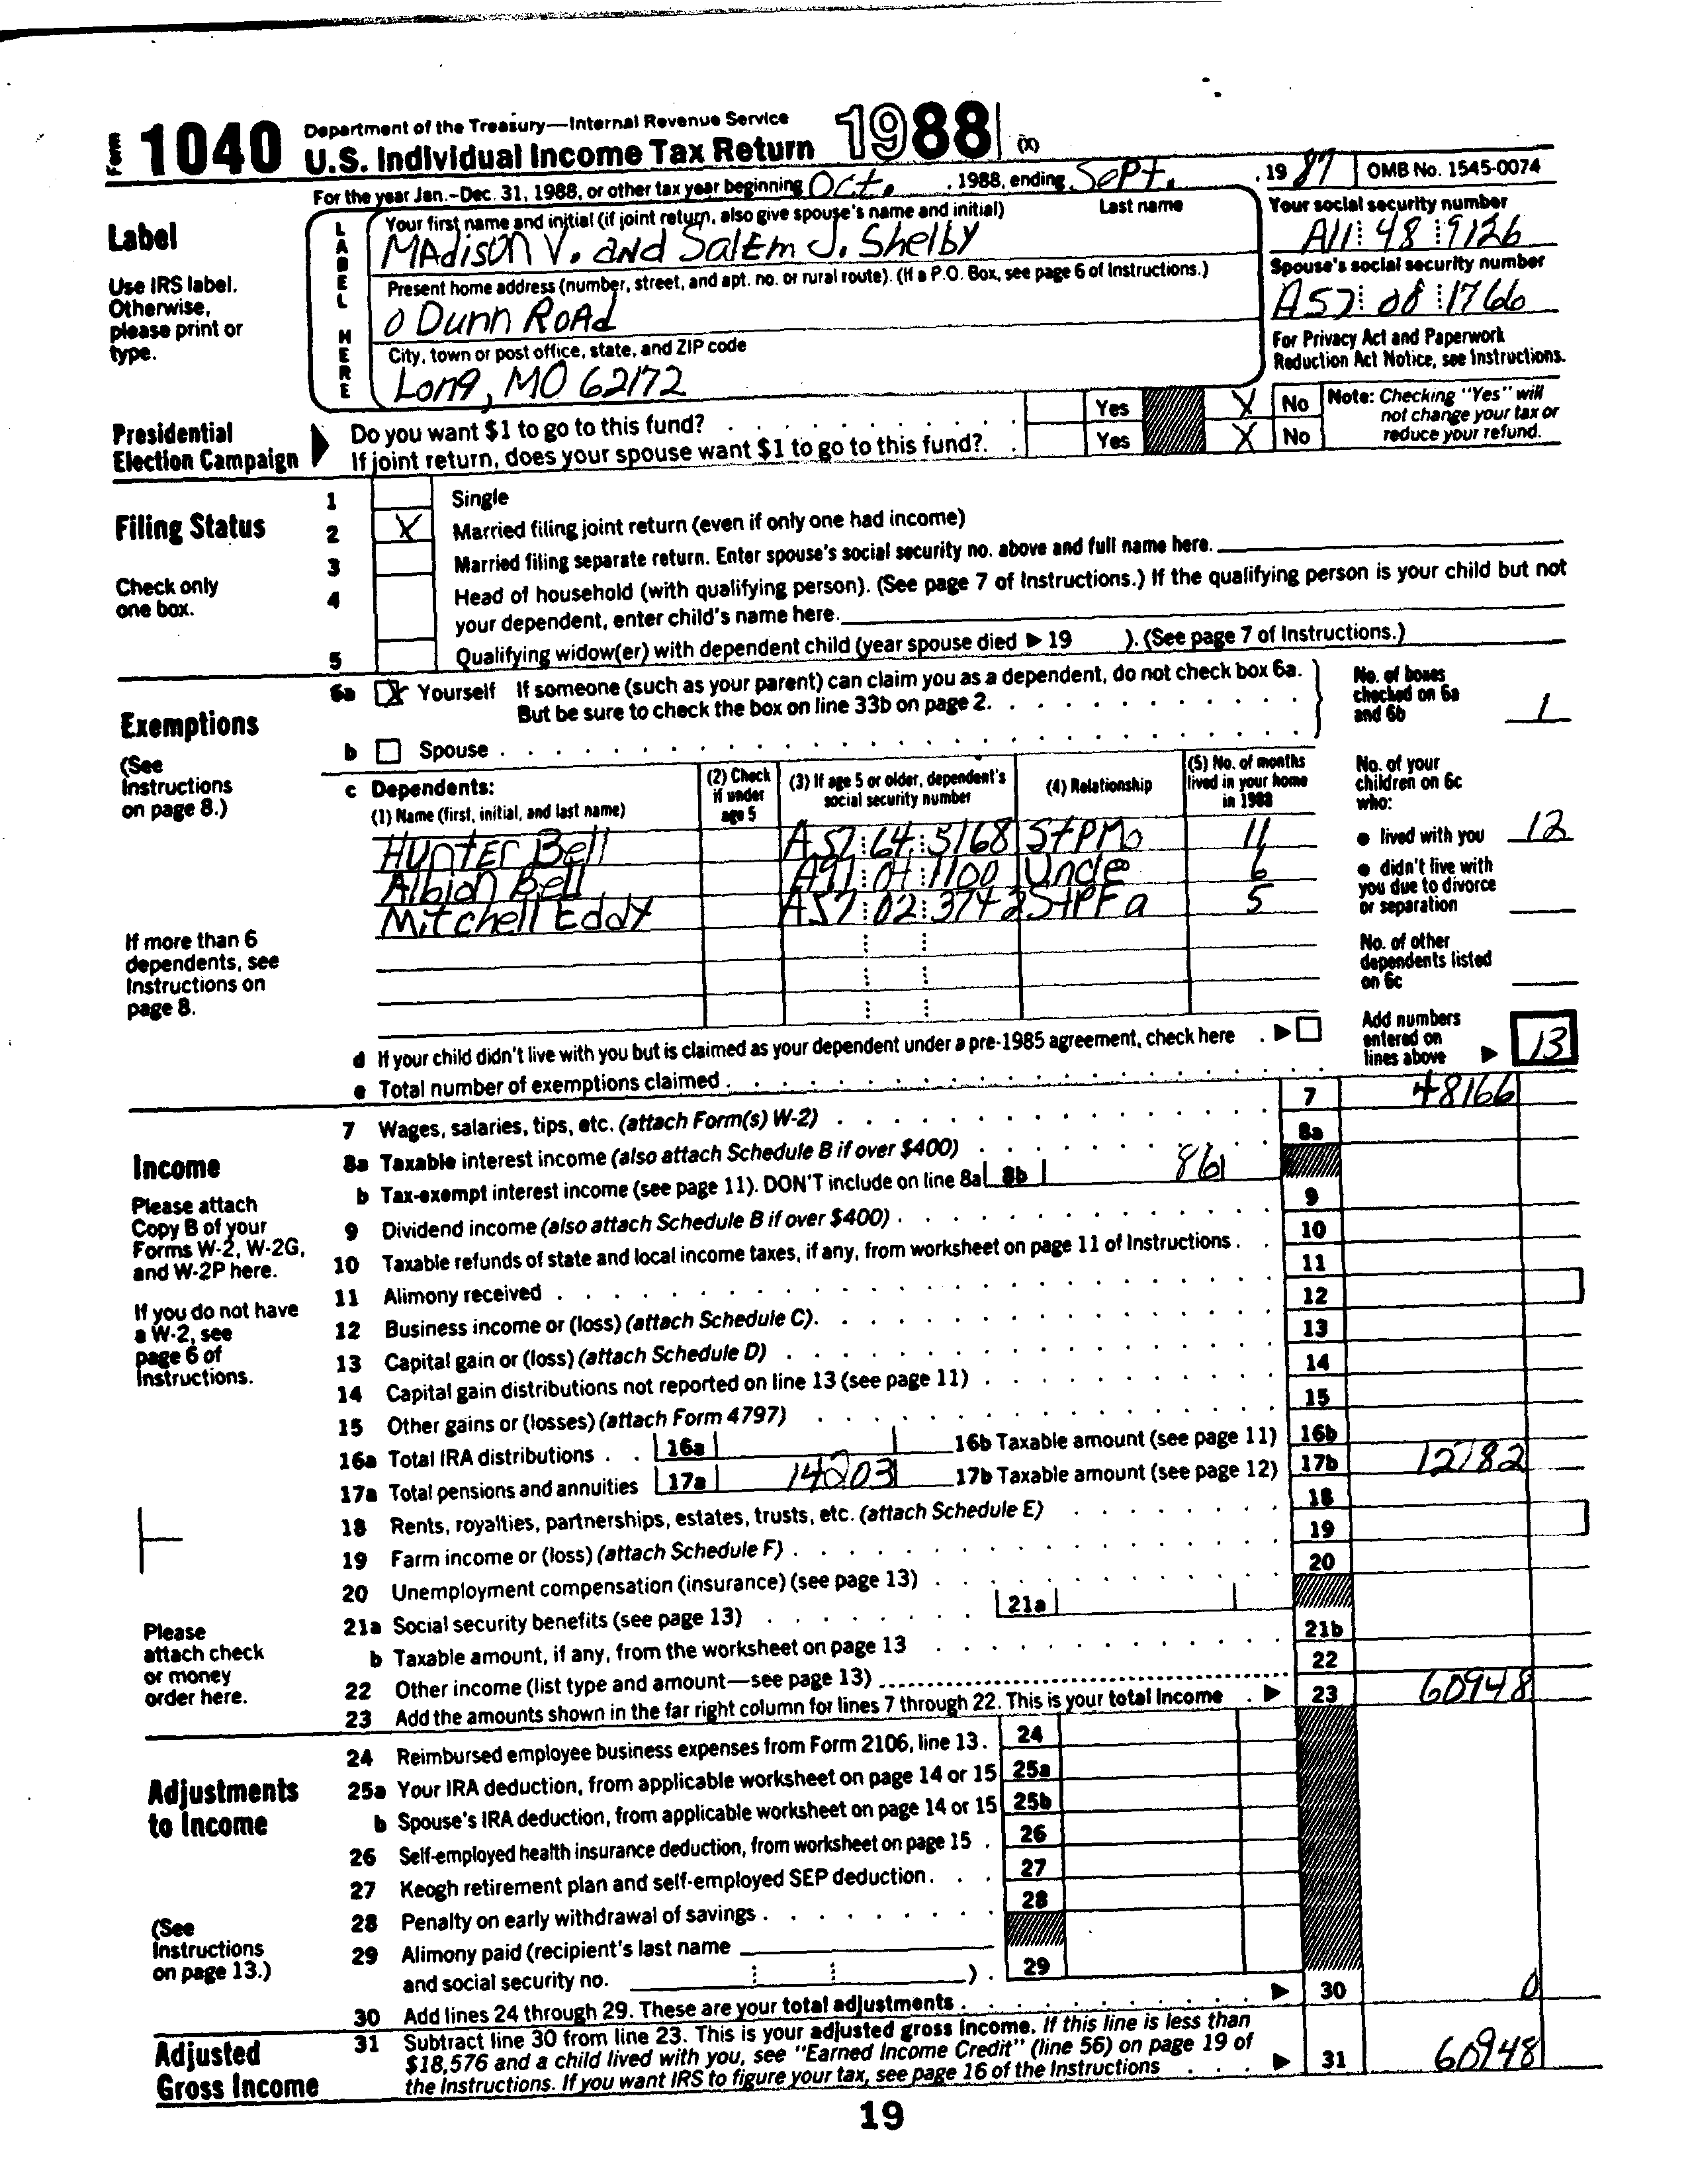 Form 1040 Department of the Treasury—Internal Revenue Service
U.S. Individual Income Tax Return 1988 (X)
For the year Jan.–Dec. 31, 1988, or other tax year beginning Oct. , 1988, ending Sept. , 19 87 OMB No. 1545-0074
Label
Use IRS label.
Otherwise,
please print or
type.
LABEL HERE
Your first name and initial (if joint return, also give spouse's name and initial) Last name
MAdison V. and SalEm J. Shelby
Your social security number
A11 48 9126
Present home address (number, street, and apt. no. or rural route). (If a P.O. Box, see page 6 of Instructions.)
0 Dunn RoAd
Spouse's social security number
A57 08 1766
City, town or post office, state, and ZIP code
Long, MO 62172
For Privacy Act and Paperwork
Reduction Act Notice, see Instructions.
Presidential
Election Campaign
Do you want $1 to go to this fund? Yes X No
If joint return, does your spouse want $1 to go to this fund? Yes X No
Note: Checking "Yes" will
not change your tax or
reduce your refund.
Filing Status
Check only
one box.
1 Single
2 X Married filing joint return (even if only one had income)
3 Married filing separate return. Enter spouse's social security no. above and full name here.
4 Head of household (with qualifying person). (See page 7 of Instructions.) If the qualifying person is your child but not
your dependent, enter child's name here.
5 Qualifying widow(er) with dependent child (year spouse died ▶ 19 ). (See page 7 of Instructions.)
Exemptions
(See
Instructions
on page 8.)
6a X Yourself If someone (such as your parent) can claim you as a dependent, do not check box 6a.
But be sure to check the box on line 33b on page 2.
b Spouse
No. of boxes
checked on 6a
and 6b 1
c Dependents:
(1) Name (first, initial, and last name)
(2) Check
if under
age 5
(3) If age 5 or older, dependent's
social security number
(4) Relationship
(5) No. of months
lived in your home
in 1988
HuntEr Bell A57 64 5168 StPMo 11
Albion Bell A91 01 1100 Uncle 6
Mitchell Eddy A57 02 3742 StPFa 5
No. of your
children on 6c
who:
● lived with you 12
● didn't live with
you due to divorce
or separation
No. of other
dependents listed
on 6c
If more than 6
dependents, see
Instructions on
page 8.
d If your child didn't live with you but is claimed as your dependent under a pre-1985 agreement, check here ▶
e Total number of exemptions claimed
Add numbers
entered on
lines above ▶ 13
Income
Please attach
Copy B of your
Forms W-2, W-2G,
and W-2P here.
If you do not have
a W-2, see
page 6 of
Instructions.
Please
attach check
or money
order here.
7 Wages, salaries, tips, etc. (attach Form(s) W-2) 7 48166
8a Taxable interest income (also attach Schedule B if over $400) 8a
b Tax-exempt interest income (see page 11). DON'T include on line 8a 8b 861
9 Dividend income (also attach Schedule B if over $400) 9
10 Taxable refunds of state and local income taxes, if any, from worksheet on page 11 of Instructions 10
11 Alimony received 11
12 Business income or (loss) (attach Schedule C) 12
13 Capital gain or (loss) (attach Schedule D) 13
14 Capital gain distributions not reported on line 13 (see page 11) 14
15 Other gains or (losses) (attach Form 4797) 15
16a Total IRA distributions 16a 16b Taxable amount (see page 11) 16b
17a Total pensions and annuities 17a 14203 17b Taxable amount (see page 12) 17b 12782
18 Rents, royalties, partnerships, estates, trusts, etc. (attach Schedule E) 18
19 Farm income or (loss) (attach Schedule F) 19
20 Unemployment compensation (insurance) (see page 13) 20
21a Social security benefits (see page 13) 21a
b Taxable amount, if any, from the worksheet on page 13 21b
22 Other income (list type and amount—see page 13) 22
23 Add the amounts shown in the far right column for lines 7 through 22. This is your total income ▶ 23 60948
Adjustments
to Income
(See
Instructions
on page 13.)
24 Reimbursed employee business expenses from Form 2106, line 13. 24
25a Your IRA deduction, from applicable worksheet on page 14 or 15 25a
b Spouse's IRA deduction, from applicable worksheet on page 14 or 15 25b
26 Self-employed health insurance deduction, from worksheet on page 15 26
27 Keogh retirement plan and self-employed SEP deduction 27
28 Penalty on early withdrawal of savings 28
29 Alimony paid (recipient's last name
and social security no. ) 29
30 Add lines 24 through 29. These are your total adjustments ▶ 30 0
Adjusted
Gross Income
31 Subtract line 30 from line 23. This is your adjusted gross income. If this line is less than
$18,576 and a child lived with you, see "Earned Income Credit" (line 56) on page 19 of
the Instructions. If you want IRS to figure your tax, see page 16 of the Instructions ▶ 31 60948
19